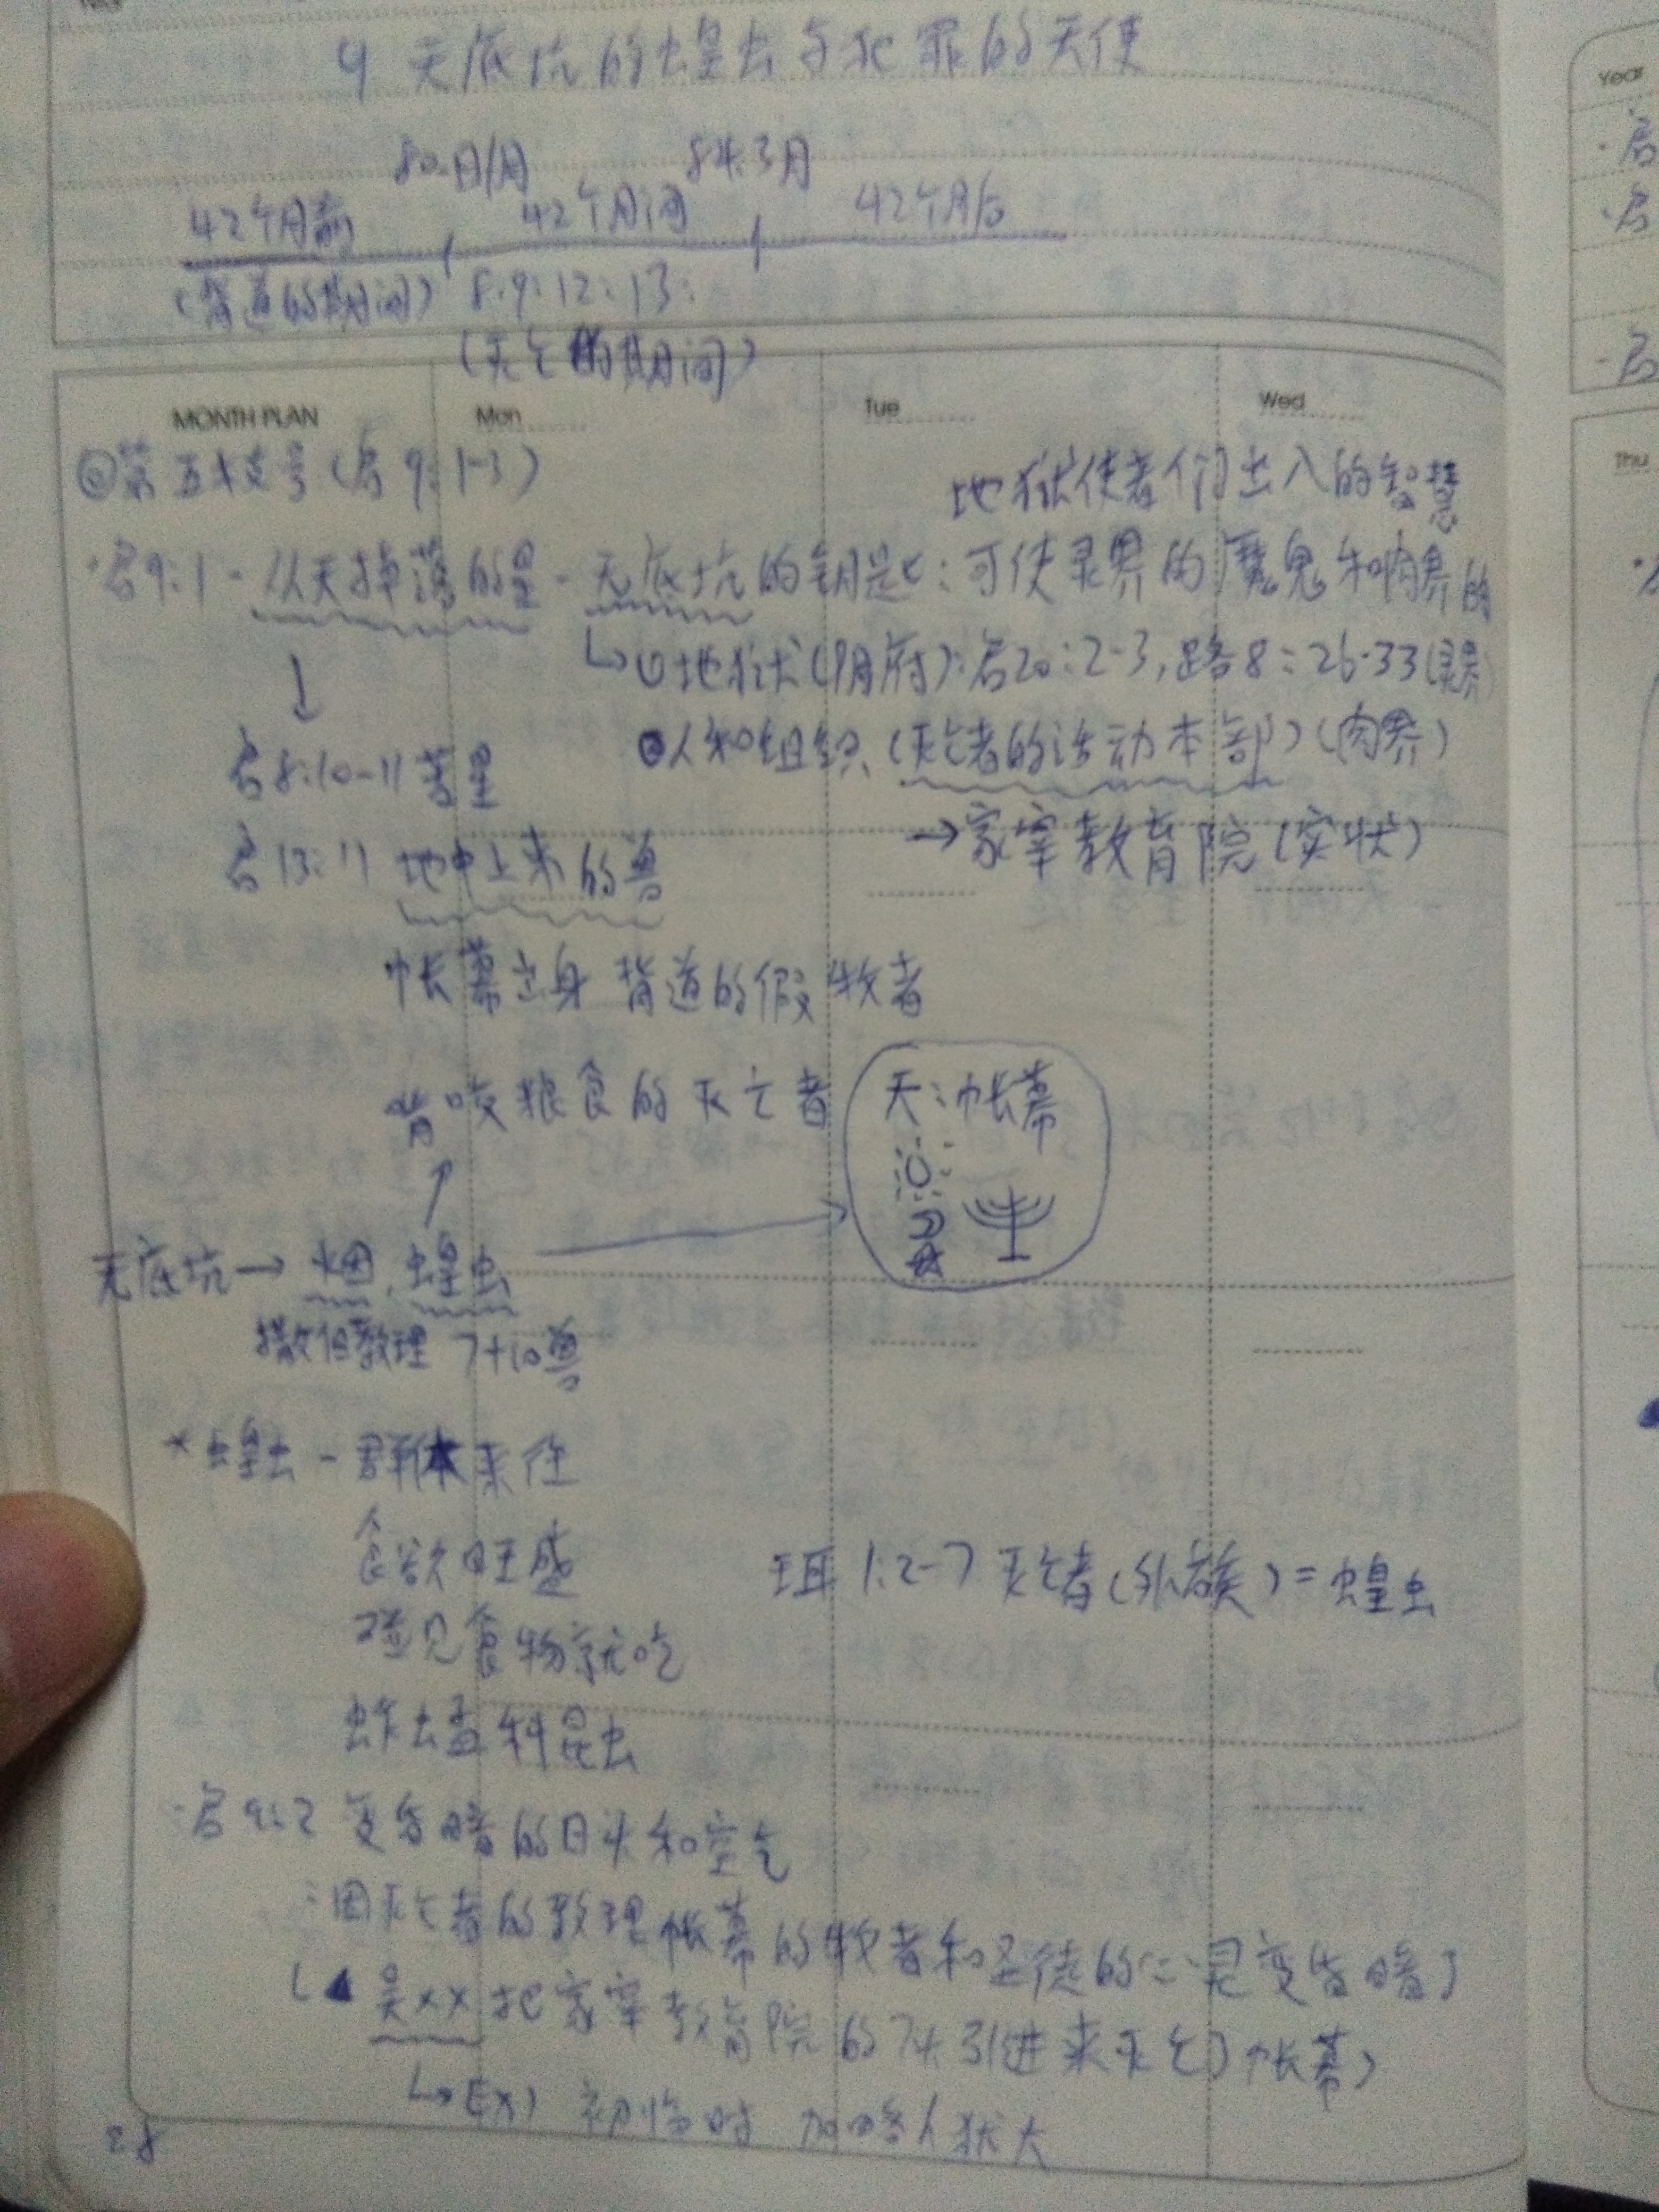 9 无底坑的蝗虫与犯罪的天使
84.3月
42个月前 42个月间 42个月后
(背道的期间) 8:9:12:13:
(灭亡的期间)
MONTH PLAN Mon Tue Wed
(启9:1-3)
地狱使者们出入的智慧
·启9:1-从天掉落的星-无底坑的钥匙:可使灵界的魔鬼和肉界的
↳①地狱(阴府):启20:2-3,路8:26-33(灵界)
②人和组织(灭亡者的活动本部)(肉界)
→家宰教育院(实状)
↓
启8:10-11 苦星
启13:11 地中上来的兽
帐幕出身 背道的假牧者
粮食的灭亡者
天:帐幕
无底坑→烟,蝗虫
撒但教理 7+10兽
*蝗虫-群体来往
食欲旺盛
碰见食物就吃
蚱虫孟科昆虫
珥1:2-7 灭亡者(外族)=蝗虫
·启9:2 变昏暗的日头和空气
:因灭亡者的教理帐幕的牧者和圣徒的心灵变昏暗了
(▲吴××把家宰教育院的7头引进来灭亡了帐幕)
↳Ex) 初临时 加略人犹大
28
Year
Thu